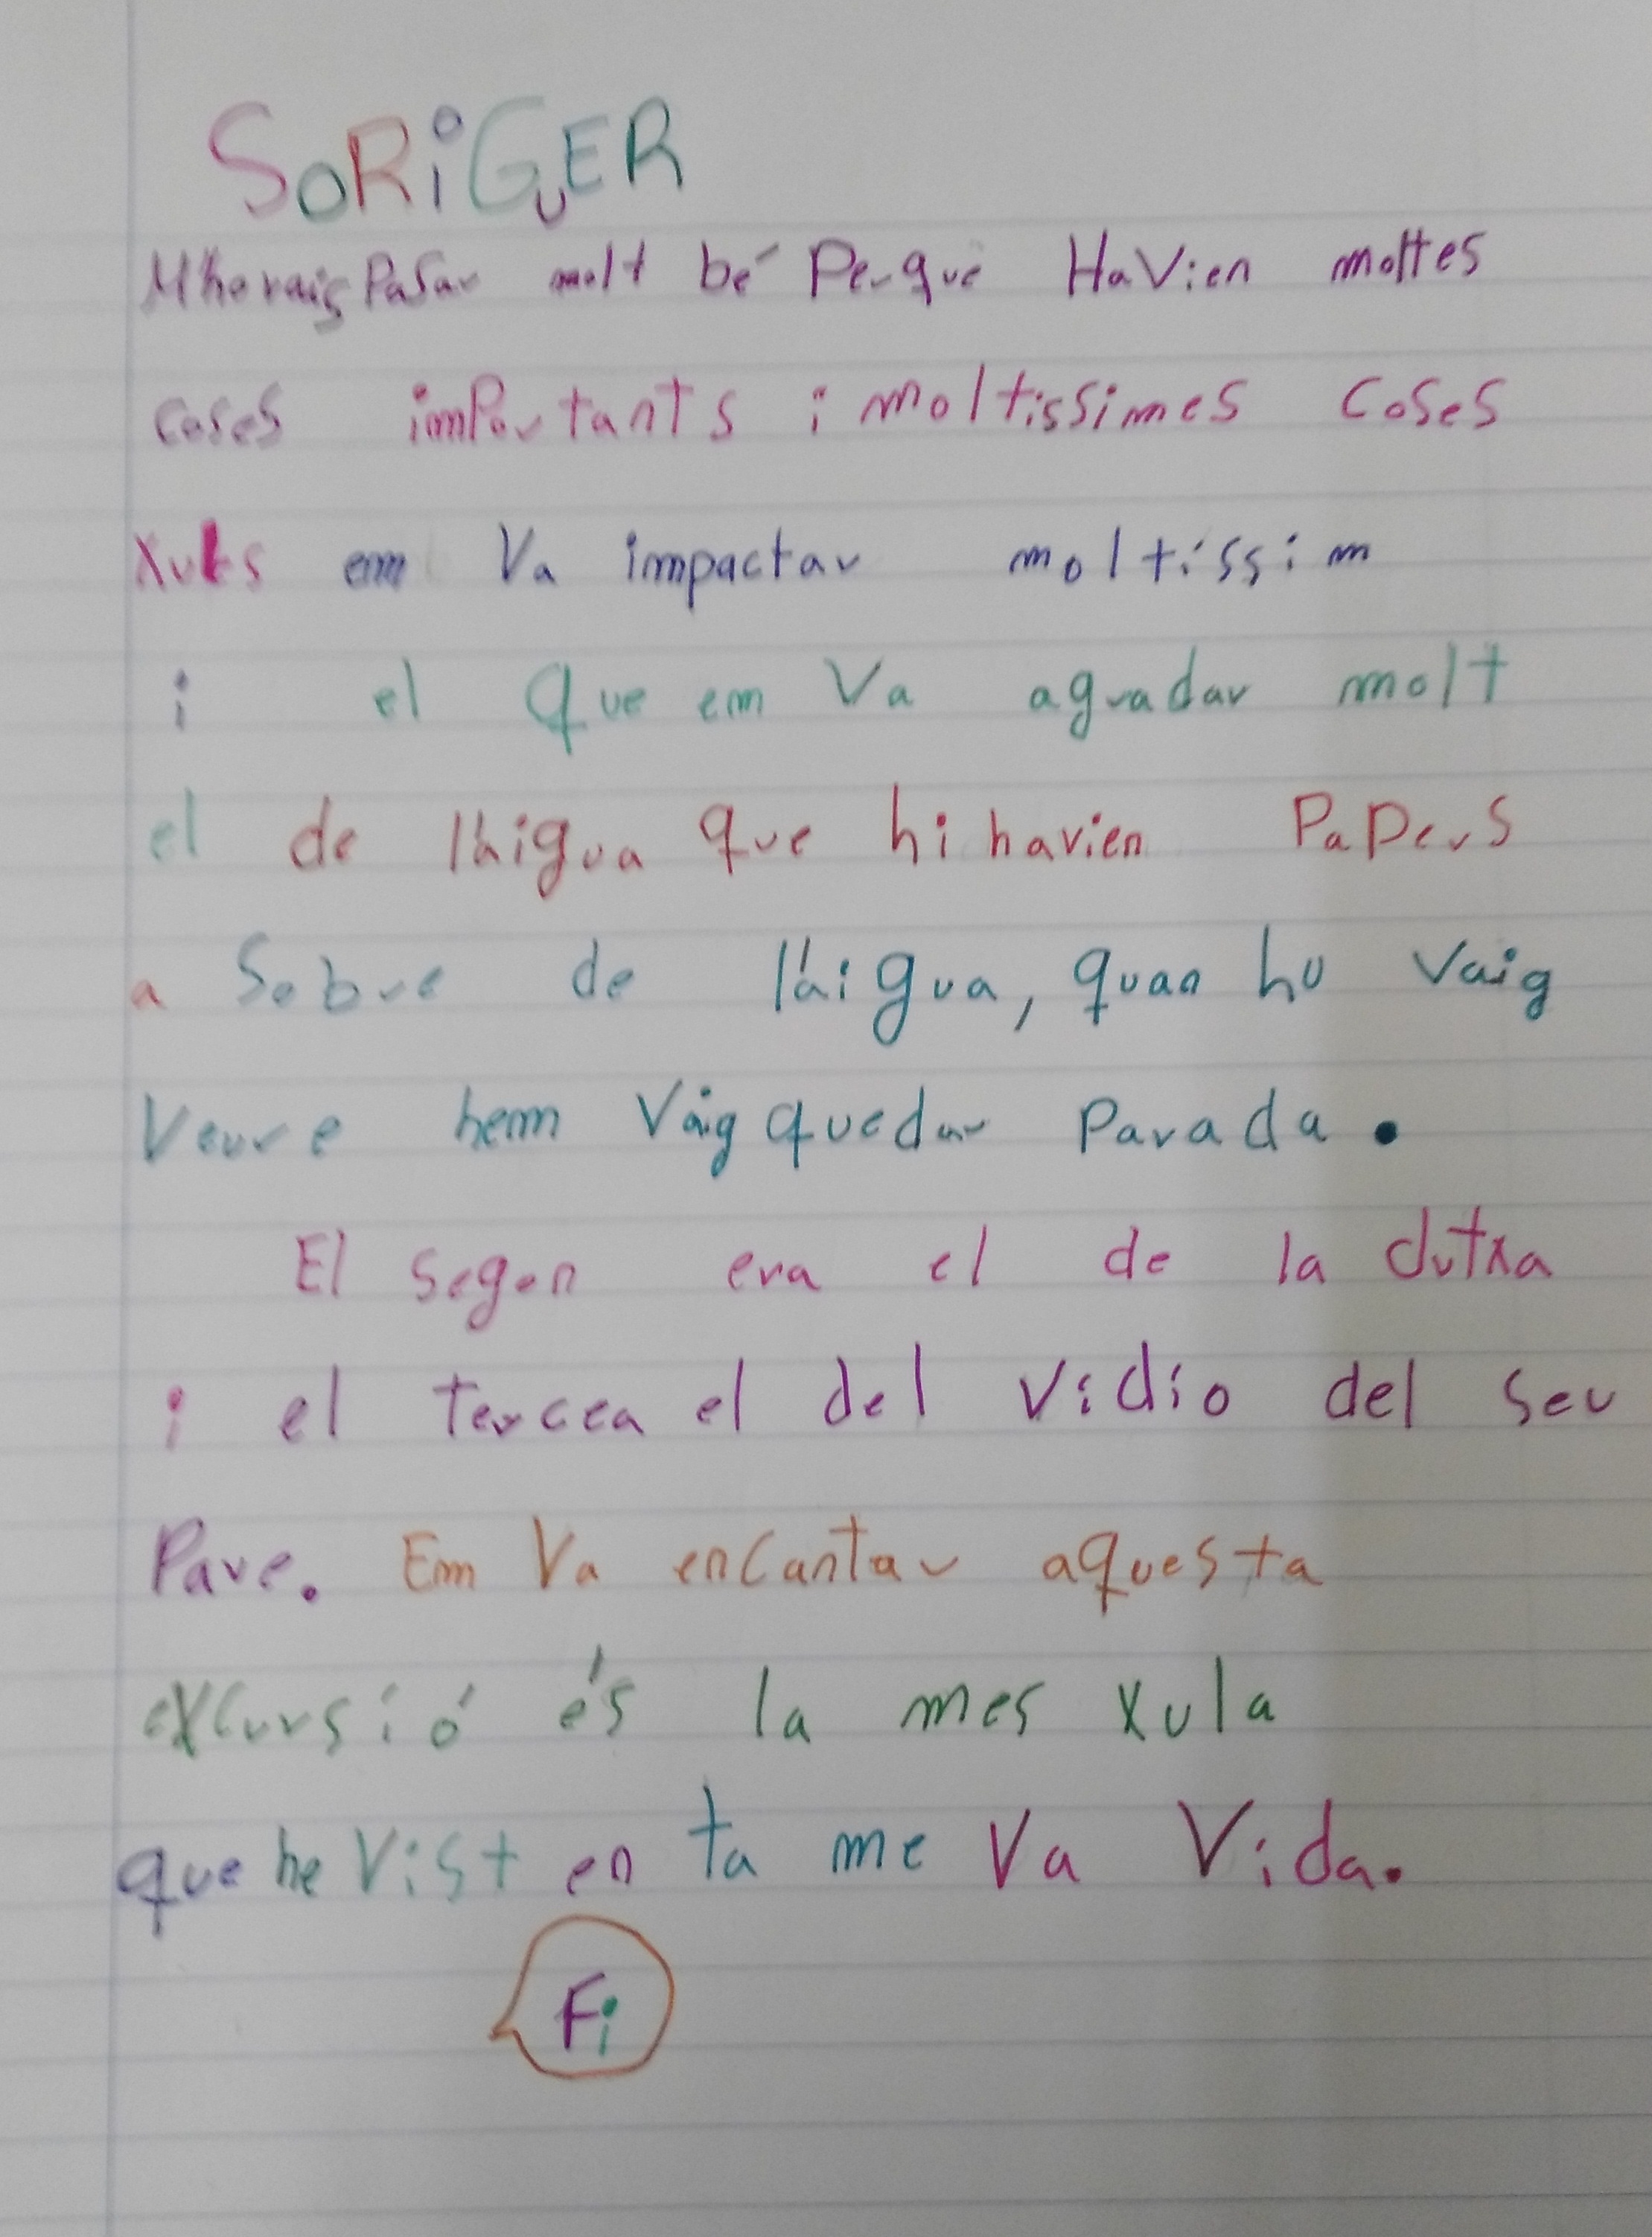 SORiGUER
M'ho vaig Pasar molt bé Perquè HaVien moltes
coses imPortants i moltissimes coses
Xules em Va impactar moltíssim
i el que em Va agradar molt
el de l'aigua que hi havien PaPers
a Sobre de l'aigua, quan hu Vaig
Veure hem Vaig quedar Parada.
El segon era el de la dutxa
i el tercea el del Vidio del seu
Pare. Em Va encantar aquesta
excursió és la mes xula
que he Vist en ta me Va Vida.
Fi